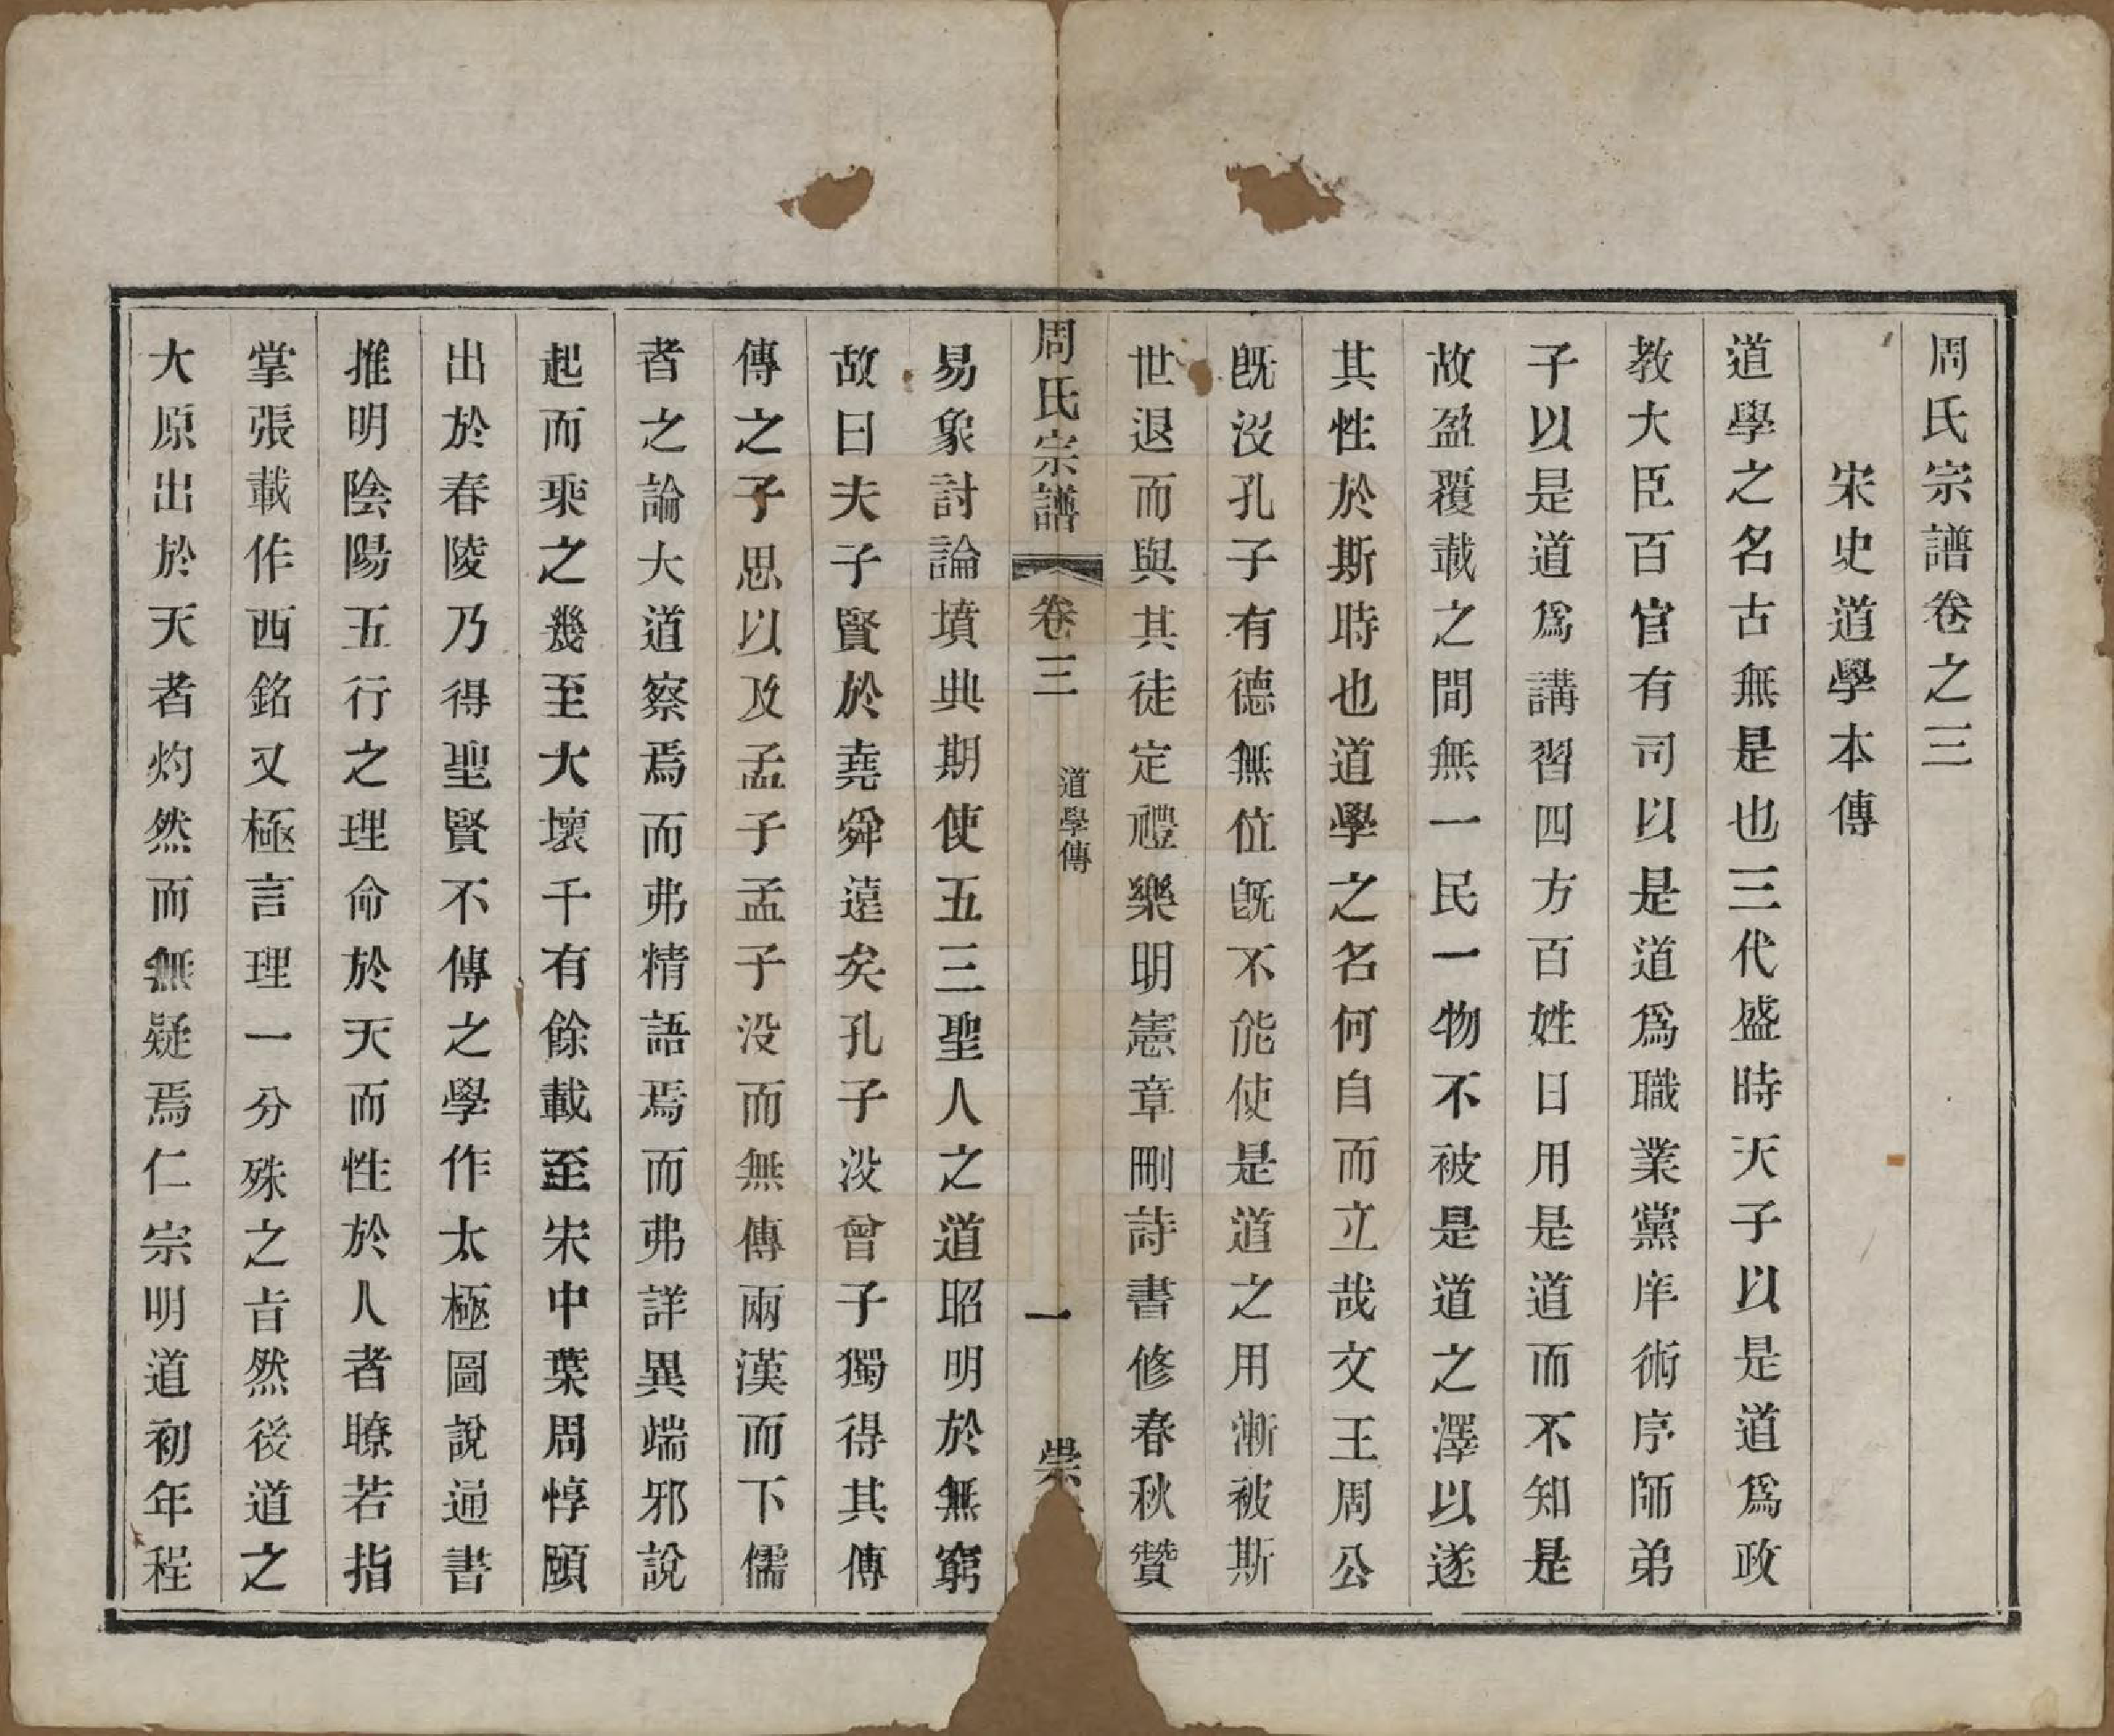 周氏宗譜卷之三
宋史道學本傳
道學之名古無是也三代盛時天子以是道爲政
教大臣百官有司以是道爲職業黨庠術序師弟
子以是道爲講習四方百姓日用是道而不知是
故盈覆載之間無一民一物不被是道之澤以遂
其性於斯時也道學之名何自而立哉文王周公
旣沒孔子有德無位旣不能使是道之用漸被斯
世退而與其徒定禮樂明憲章刪詩書修春秋贊
周氏宗譜
卷三
道學傳
一
崇
易象討論墳典期使五三聖人之道昭明於無窮
故曰夫子賢於堯舜遠矣孔子沒曾子獨得其傳
傳之子思以及孟子孟子沒而無傳兩漢而下儒
者之論大道察焉而弗精語焉而弗詳異端邪說
起而乘之幾至大壞千有餘載至宋中葉周惇頤
出於春陵乃得聖賢不傳之學作太極圖說通書
推明陰陽五行之理命於天而性於人者瞭若指
掌張載作西銘又極言理一分殊之㫖然後道之
大原出於天者灼然而無疑焉仁宗明道初年程